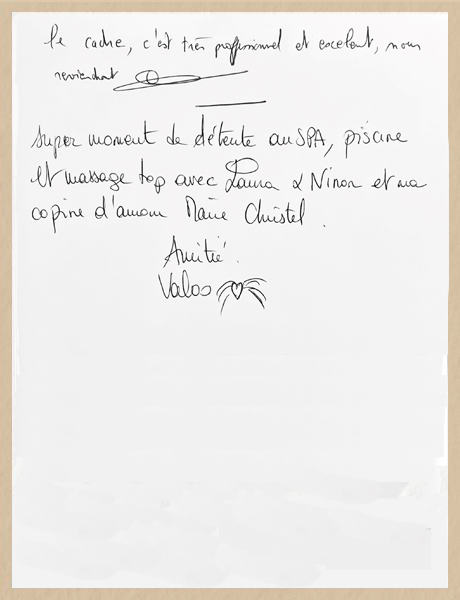 le cadre, c'est très professionnel et excelent, nous
reviendront
Super moment de détente au SPA, piscine
et massage top avec Laura & Ninon et ma
copine d'amour Marie Christel.
Amitié.
Valoo